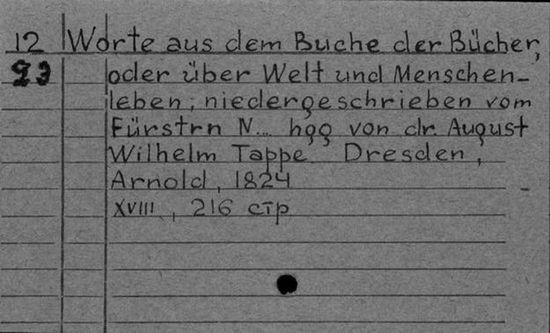 12 Worte aus dem Buche der Bücher,
93 oder über Welt und Menschen-
leben, niedergeschrieben vom
Fürstrn N... hgg von dr. August
Wilhelm Tappe, Dresden,
Arnold, 1824
XVIII, 216 стр